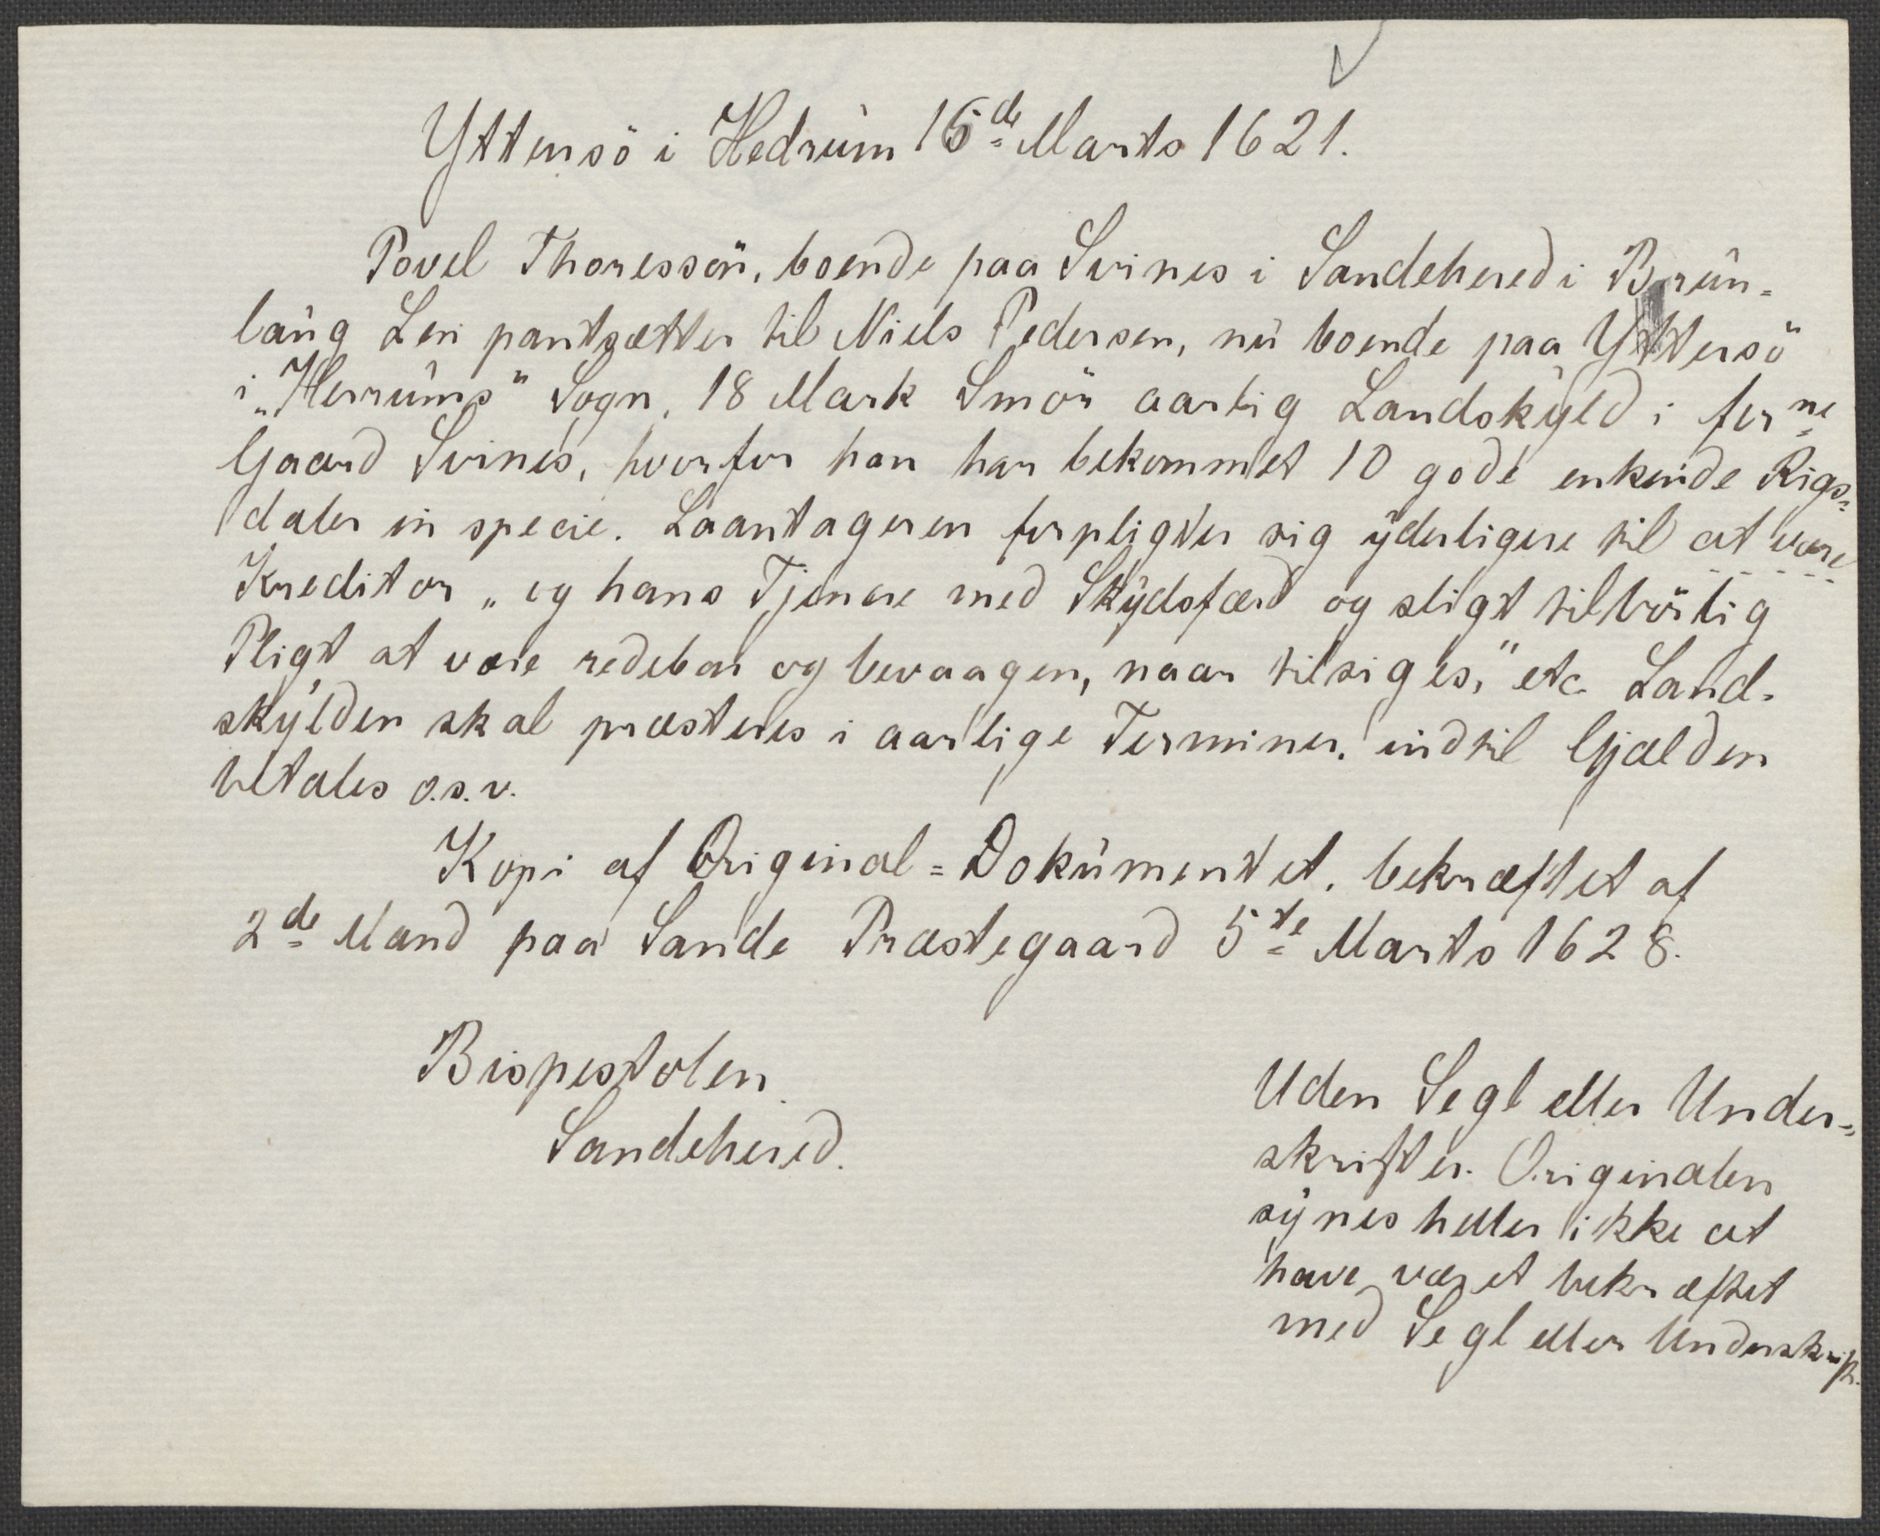 Yttersö i Hedrum 15de Marts 1621.
Povel Thoressön, boende paa Svines i Sandehered i Brun-
laug Len pantsætter til Niels Pedersen, nu boende paa Yttersö
i „Herrums" Sogn, 18 Mark Smör aarlig Landskyld i forne
Gaard Svines, hvorfor han har bekommet 10 gode enkende Rigs-
daler in specie. Laantageren forpligter sig yderligere til at være
Kreditor „og hans Tjenere med Skydsfærd og sligt tilbörlig
Pligt at være redebon og bevaagen, naar tilsiges," etc. Land-
skylden skal præsteres i aarlige Terminer, indtil Gjælden
betales o.s.v.
Kopi af Original-Dokumentet, bekræftet af
2de Mænd paa Sande Præstegaard 5te Marts 1628.
Bispestolen
Sandehered.
Uden Segl eller Under-
skrifter. Originalen
synes heller ikke at
have været bekræftet
med Segl eller Underskrift.